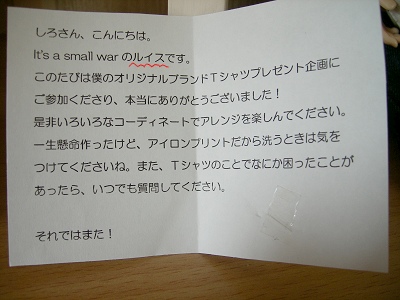 しろさん、こんにちは。
It's a small war のルイスです。
このたびは僕のオリジナルブランドTシャツプレゼント企画に
ご参加くださり、本当にありがとうございました！
是非いろいろなコーディネートでアレンジを楽しんでください。
一生懸命作ったけど、アイロンプリントだから洗うときは気を
つけてくださいね。また、Tシャツのことでなにか困ったことが
あったら、いつでも質問してください。
それではまた！